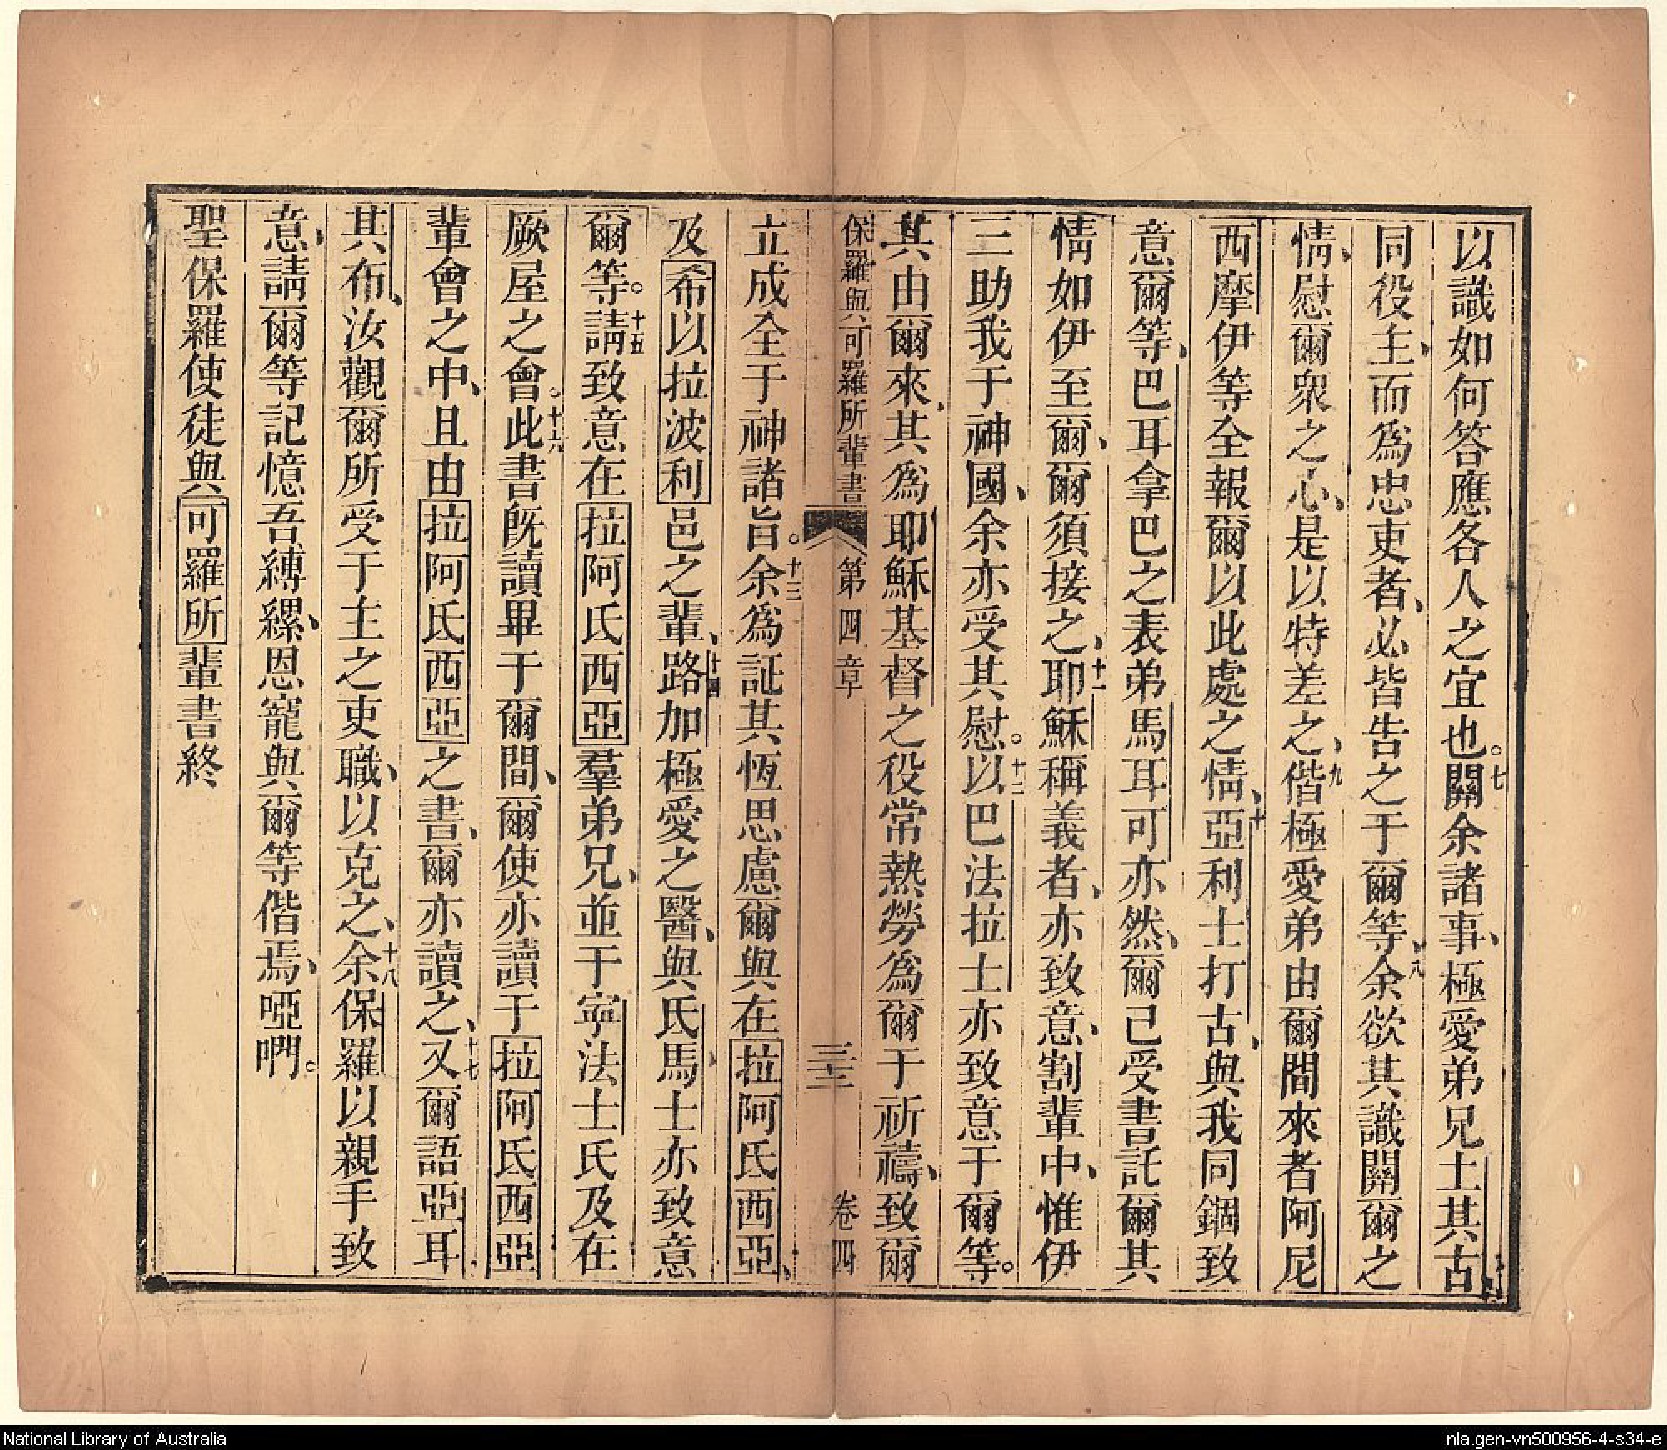 以識如何答應各人之宜也。七關余諸事、極愛弟兄土其古
同役主、而爲忠吏者、必皆告之于爾等、八余欲其識關爾之
情、慰爾衆之心、是以特差之、九偕極愛弟由爾間來者阿尼
西摩伊等全報爾以此處之情、十亞利士打古、與我同錮致
意爾等、巴耳拿巴之表弟馬耳可亦然、爾已受書託爾其
情如伊至爾、爾須接之、十一耶穌稱義者、亦致意、割輩中、惟伊
三助我于神國、余亦受其慰。十二以巴法拉士亦致意于爾等。
其由爾來、其爲耶穌基督之役常熱勞爲爾于祈禱、致爾
保羅與可羅所輩書 第四章 三十三 卷四
立成全于神諸旨。十三余爲証其恆思慮爾與在拉阿氏西亞、
及希以拉波利邑之輩、十四路加極愛之醫、與氏馬士亦致意
爾等。十五請致意在拉阿氏西亞羣弟兄、並于寧法士氏及在
厥屋之會。十六此書旣讀畢于爾間、爾使亦讀于拉阿氏西亞
輩會之中、且由拉阿氏西亞之書、爾亦讀之、十七又爾語亞耳
其布、汝觀爾所受于主之吏職、以克之、十八余保羅以親手致
意、請爾等記憶吾縛縲、恩寵與爾等偕焉、啞唎。
聖保羅使徒與可羅所輩書終
National Library of Australia
nla.gen-vn500956-4-s34-e